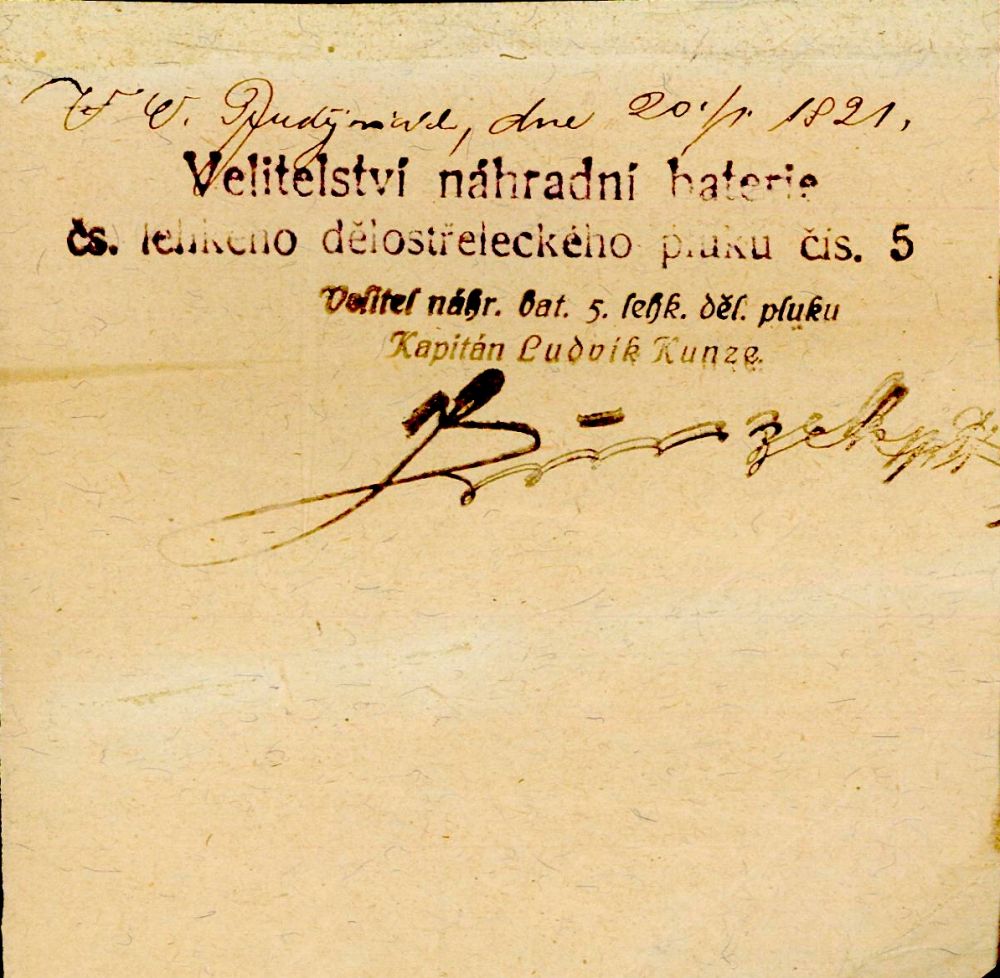 V Č. Budějovicích, dne 20./1. 1821.
Velitelství náhradní baterie
čs. lehkého dělostřeleckého pluku čís. 5
Velitel náhr. bat. 5. lehk. děl. pluku
Kapitán Ludvík Kunze.
Kunze